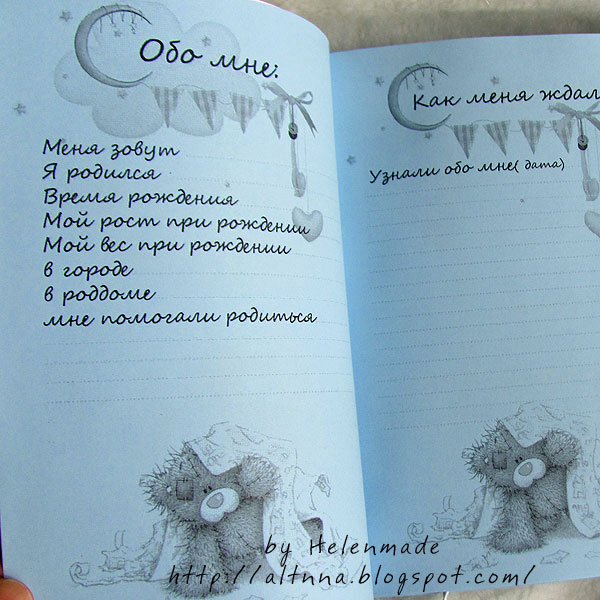 Обо мне:
Меня зовут
Я родился
Время рождения
Мой рост при рождении
Мой вес при рождении
в городе
в роддоме
мне помогали родиться
Как меня ждал
Узнали обо мне( дата)
by Helenmade
http://altnna.blogspot.com/